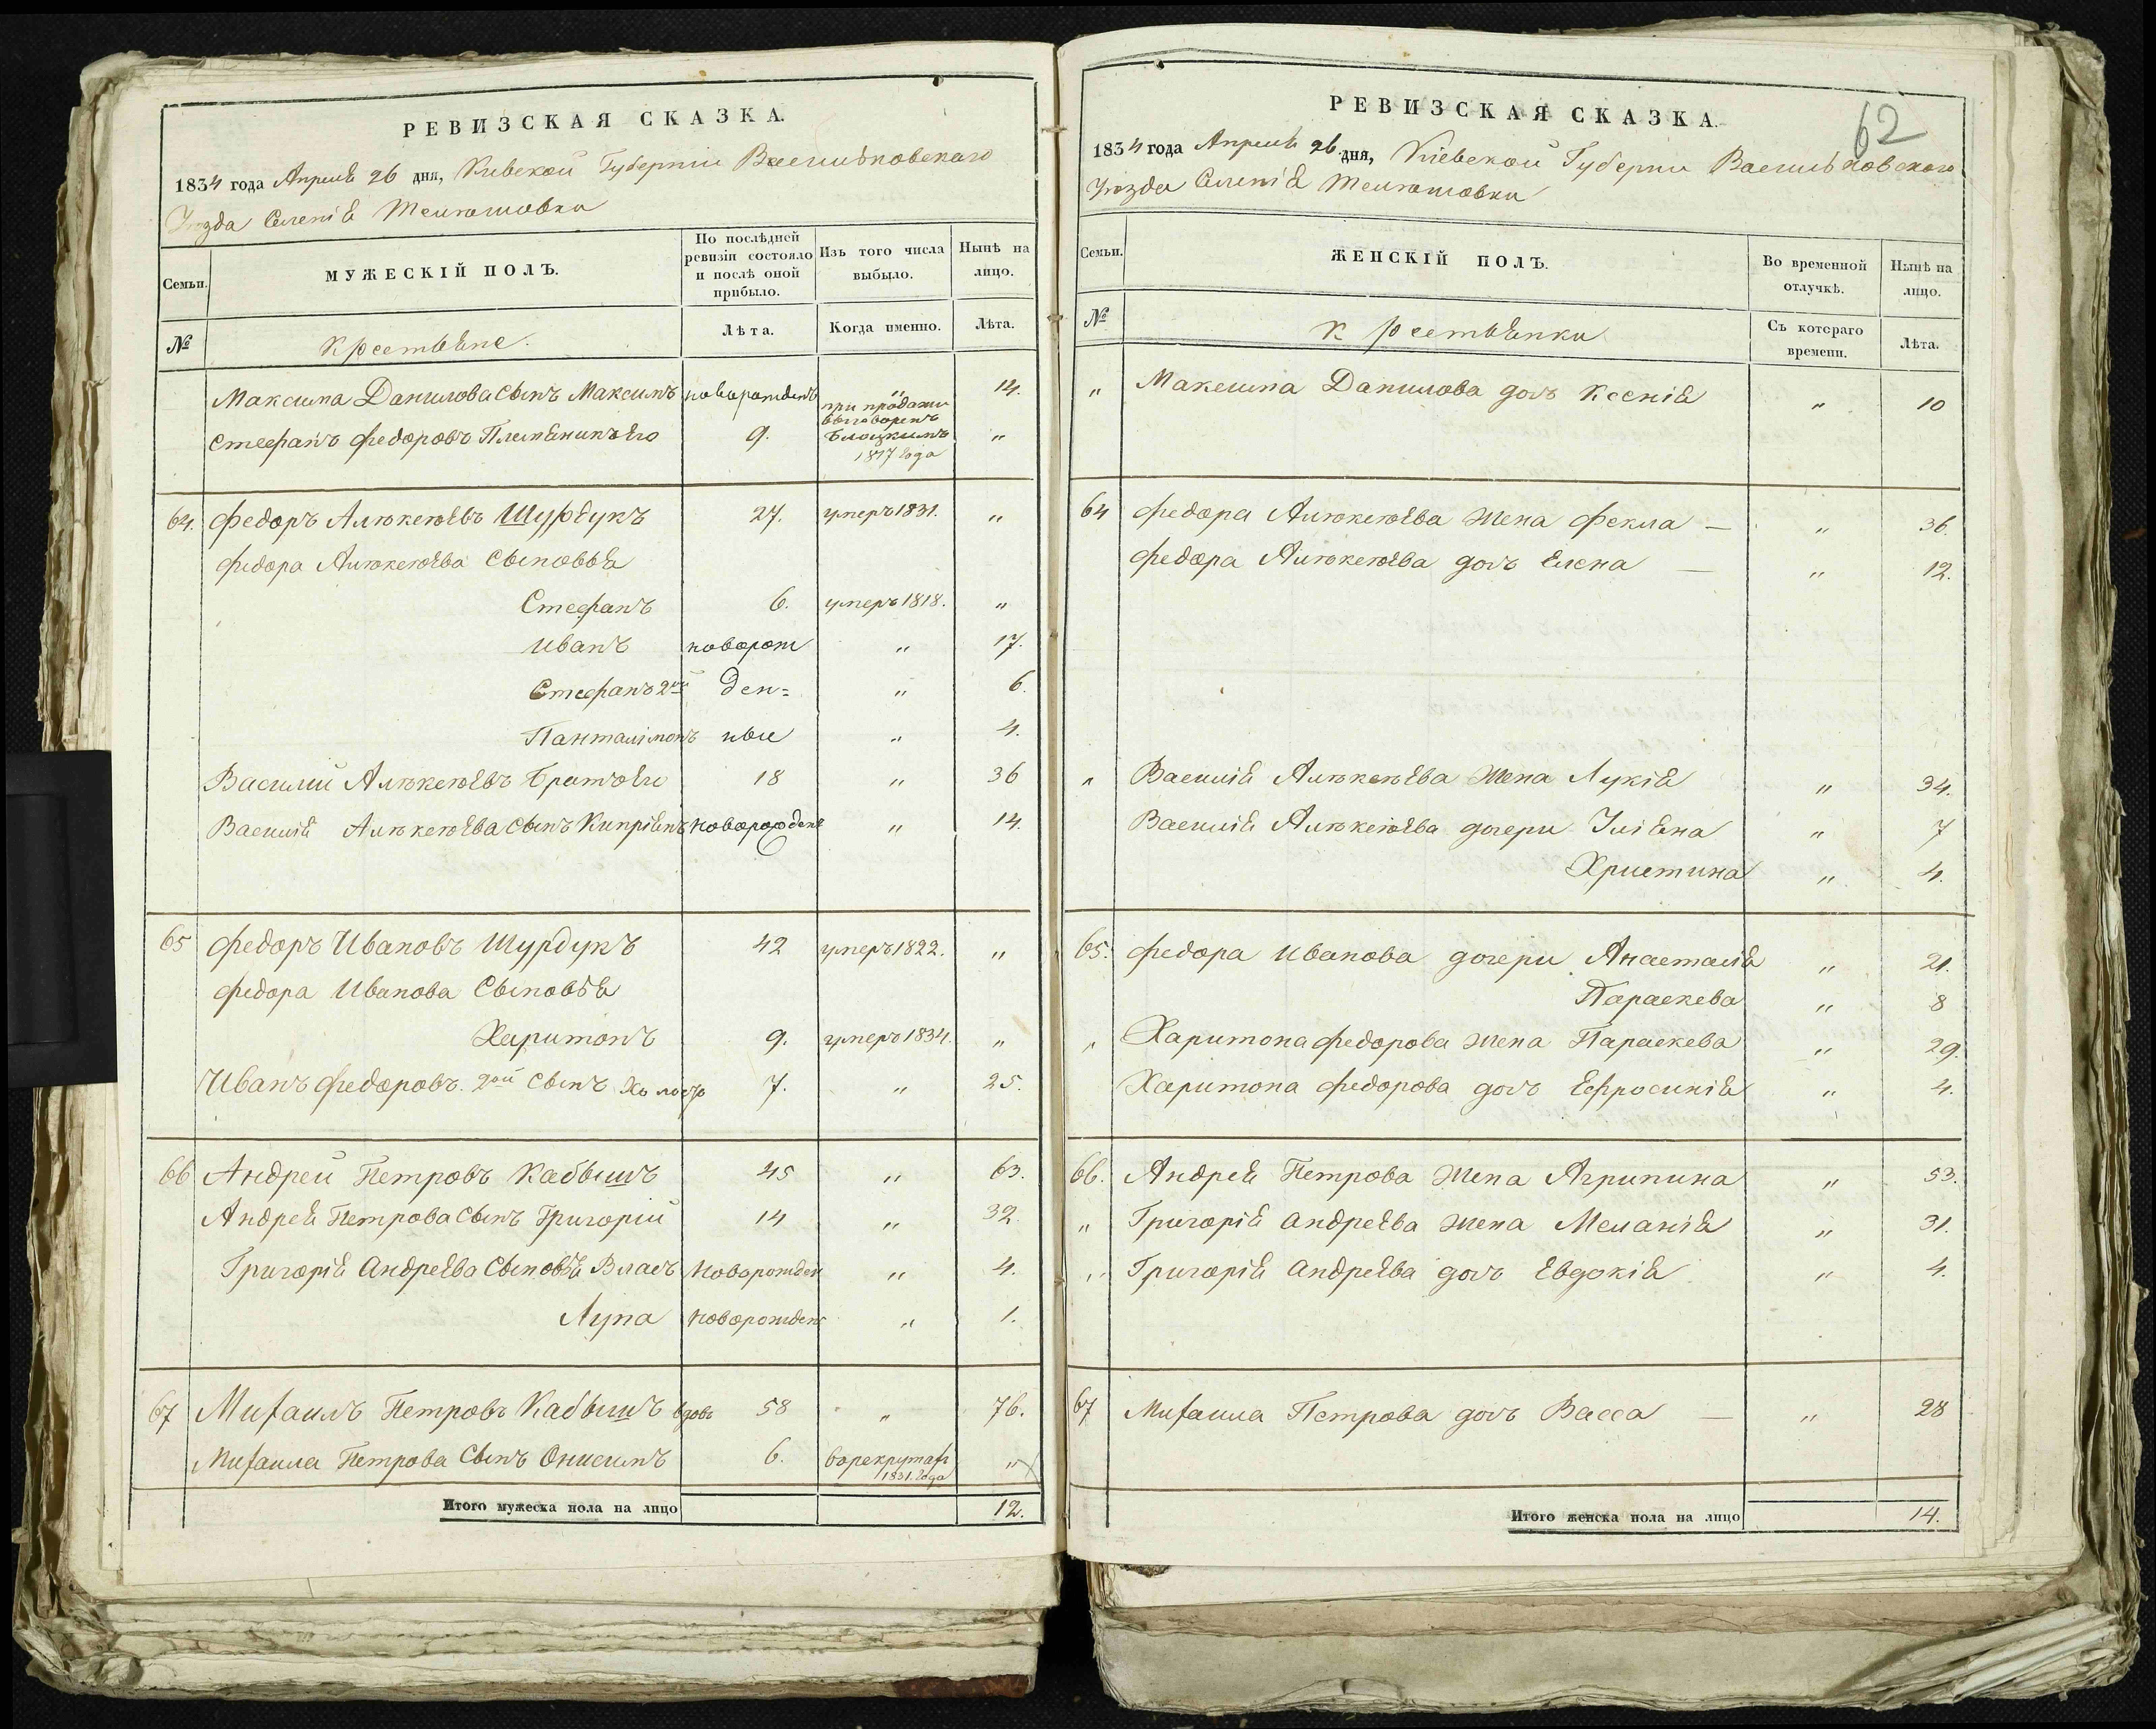 РЕВИЗСКАЯ СКАЗКА.
1834 года Апреля 26 дня, Киевской Губерніи Васильковскаго
Уѣзда Селенія
Семьи.
МУЖЕСКІЙ ПОЛЪ.
По послѣдней ревизіи состояло и послѣ оной прибыло.
Изъ того числа выбыло.
Нынѣ на лицо.
№
Крестьяне.
Лѣта.
Когда именно.
Лѣта.
Максима Данилова сынъ Максимъ новорожденъ " 14.
Стефанъ Федоровъ Племяникъ Его 9. при продажи выговоренъ 1817 года "
64. Федоръ Алѣксѣевъ Шурдукъ 27. умеръ 1831. "
Федора Алѣксѣева Сыновья
Стефанъ 6. умеръ 1818. "
Иванъ новорож " 17.
Стефанъ 2й ден= " 6.
Панталімонъ ные " 4.
Василий Алѣксѣевъ Братъ Его 18 " 36
Василія Алѣксѣева сынъ Кипріянъ новорожденъ " 14.
65 Федоръ Ивановъ Шурдукъ 42 умеръ 1822. "
Федора Иванова Сыновья
Харитонъ 9. умеръ 1834. "
Иванъ Федоровъ 2ой сынъ 7. " 25.
66 Андрей Петровъ Кабышъ 45 " 63.
Андрея Петрова сынъ Григорій 14 " 32.
Григорія Андреева Сыновья Власъ Новорожден " 4.
Лупа новорожден " 1.
67 Михаилъ Петровъ Кабышъ вдовъ 58 " 76.
Михаила Петрова Сынъ Онисимъ 6. в рекрутах 1831. года "
Итого мужеска пола на лицо 12.
62
РЕВИЗСКАЯ СКАЗКА.
1834 года Апреля 26 дня, Кіевской Губерни Васильковскаго
Уѣзда Селенія
Семьи.
ЖЕНСКІЙ ПОЛЪ.
Во временной отлучкѣ.
Нынѣ на лицо.
№
Крестьянки
Съ котораго времени.
Лѣта.
" Максима Данилова дочь Ксенія " 10
64 Федора Алѣксѣева жена Фекла — " 36.
Федора Алѣксѣева дочь Елена — " 12.
" Василія Алѣксѣева жена Лукія " 34.
Василія Алѣксѣева дочери Уліяна " 7
Христина " 4.
65. Федора Иванова дочери Анастасія " 21.
Параскева " 8
" Харитона Федорова жена Параскева " 29.
Харитона Федорова дочь Ефросинія " 4.
66. Андрея Петрова жена Агрипина " 53.
" Григорія Андреева жена Меланія " 31.
" Григорія Андреева дочь Евдокія " 4.
67 Михаила Петрова дочь Васса — " 28
Итого женска пола на лицо 14.